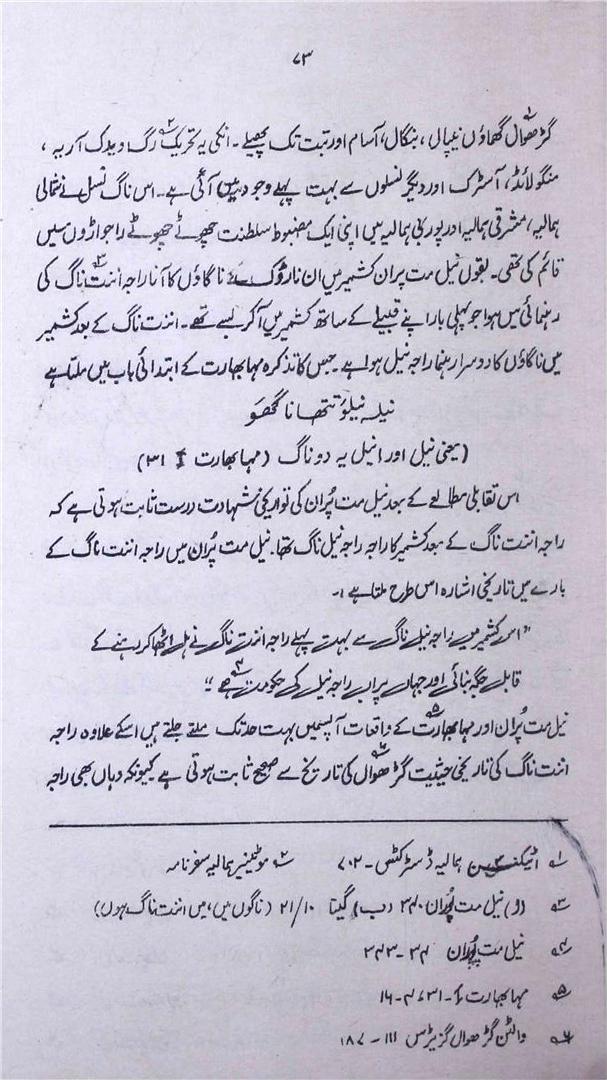 ۷۳
گڑھوال گھاؤں نیپالی، بنگال، آسام اور تبت تک پھیلے۔ انکی یہ تحریک۲ رگ ویدک آریہ،
منگولائڈ، آسٹرک اور دیگر نسلوں سے بہت پہلے وجود میں آئی ہے۔ اس ناگ نسل نے شمالی
ہمالیہ، مشرقی ہمالیہ اور پوربی ہمالیہ میں اپنی ایک مضبوط سلطنت چھوٹے چھوٹے راجواڑوں میں
قائم کی تھی۔ بقول نیل مت پران کشمیر میں ان ناگاؤں کا آنا راجہ اننت ناگ۳ کی
رہنمائی میں ہوا جو پہلی بار اپنے قبیلے کے ساتھ کشمیر میں آکر بسے تھے۔ اننت ناگ کے بعد کشمیر
میں ناگاؤں کا دوسرا رہنما راجہ نیل ہوا ہے۔ جس کا تذکرہ مہا بھارت کے ابتدائی باب میں ملتا ہے
(یعنی نیل اور انیل یہ دو ناگ (مہا بھارت I ۳۱)
اس تقابلی مطالعے کے بعد نیل مت پُران کی تواریخی شہادت درست ثابت ہوتی ہے کہ
راجہ اننت ناگ کے بعد کشمیر کا راجہ راجہ نیل ناگ تھا۔ نیل مت پُران میں راجہ اننت ناگ کے
بارے میں تاریخی اشارہ اس طرح ملتا ہے :۔
"اس کشمیر میں راجہ نیل ناگ سے بہت پہلے راجہ اننت ناگ نے ہل اٹھا کر رہنے کے
قابل جگہ بنائی اور جہاں پر اب راجہ نیل کی حکومت ہے۴"
نیل مت پُران اور مہا بھارت۵ کے واقعات آپسمیں بہت حد تک ملتے جلتے ہیں اسکے علاوہ راجہ
اننت ناگ کی تاریخی حیثیت گڑھوال۶ کی تاریخ سے صحیح ثابت ہوتی ہے کیونکہ وہاں بھی راجہ
۱؎ اٹیکنسن ہمالیہ ڈسٹرکٹس۔ ۷۰۲ ۲؎ موٹینیر ہمالیہ سفرنامہ
۳؎ (ا) نیل مت پُران ۲۴۰ (ب) گیتا ۲۱/۱۰ (ناگوں میں، میں اننت ناگ ہوں)
۴؎ نیل مت پُران ۳۴-۲۴۳
۵؎ مہا بھارت I۔ ۴۷۳۱-۱۶
۶؎ والٹن گڑھوال گزیٹرس III - ۱۸۷